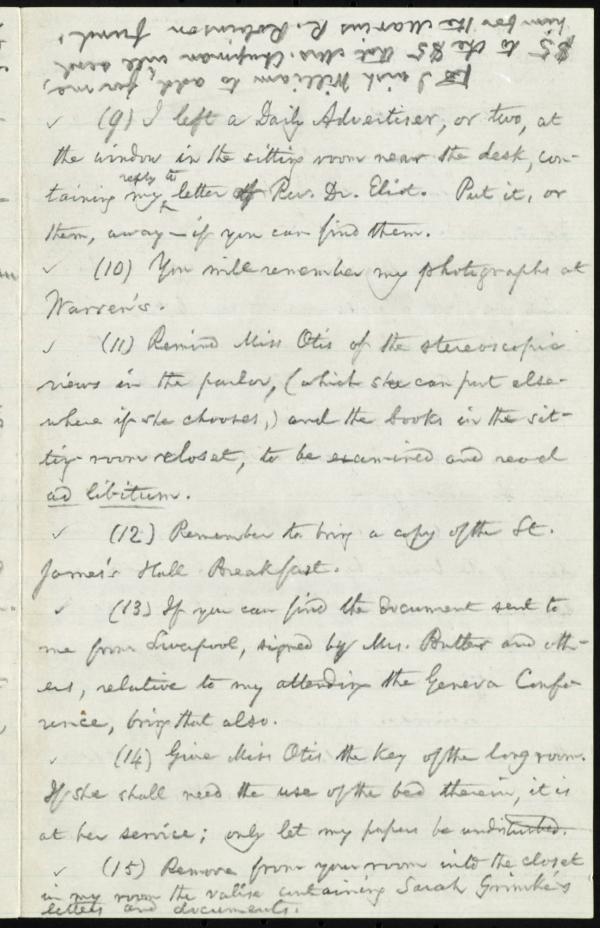 I wish William to add, for me,
$5 to the $5 that Mrs. Chapman will send
him for the Marius R. Robinson fund.
✓ (9) I left a Daily Advertiser, or two, at
the window in the sitting room near the desk, con-
reply to
taining my letter of Rev. Dr. Eliot. Put it, or
them, away—if you can find them.
✓ (10) You will remember my photographs at
Warren's.
✓ (11) Remind Miss Otis of the stereoscopic
views in the parlor, (which she can put else-
where if she chooses,) and the books in the sit-
ting-room closet, to be examined and read
ad libitum.
✓ (12) Remember to bring a copy of the St.
James's Hall Breakfast.
✓ (13) If you can find the document sent to
me from Liverpool, signed by Mrs. Butler and oth-
ers, relative to my attending the Geneva Confe-
rence, bring that also.
✓ (14) Give Miss Otis the key of the long room.
If she shall need the use of the bed therein, it is
at her service; only let my papers be undisturbed.
✓ (15) Remove from your room into the closet
in my room the valise containing Sarah Grimké's
letters and documents.